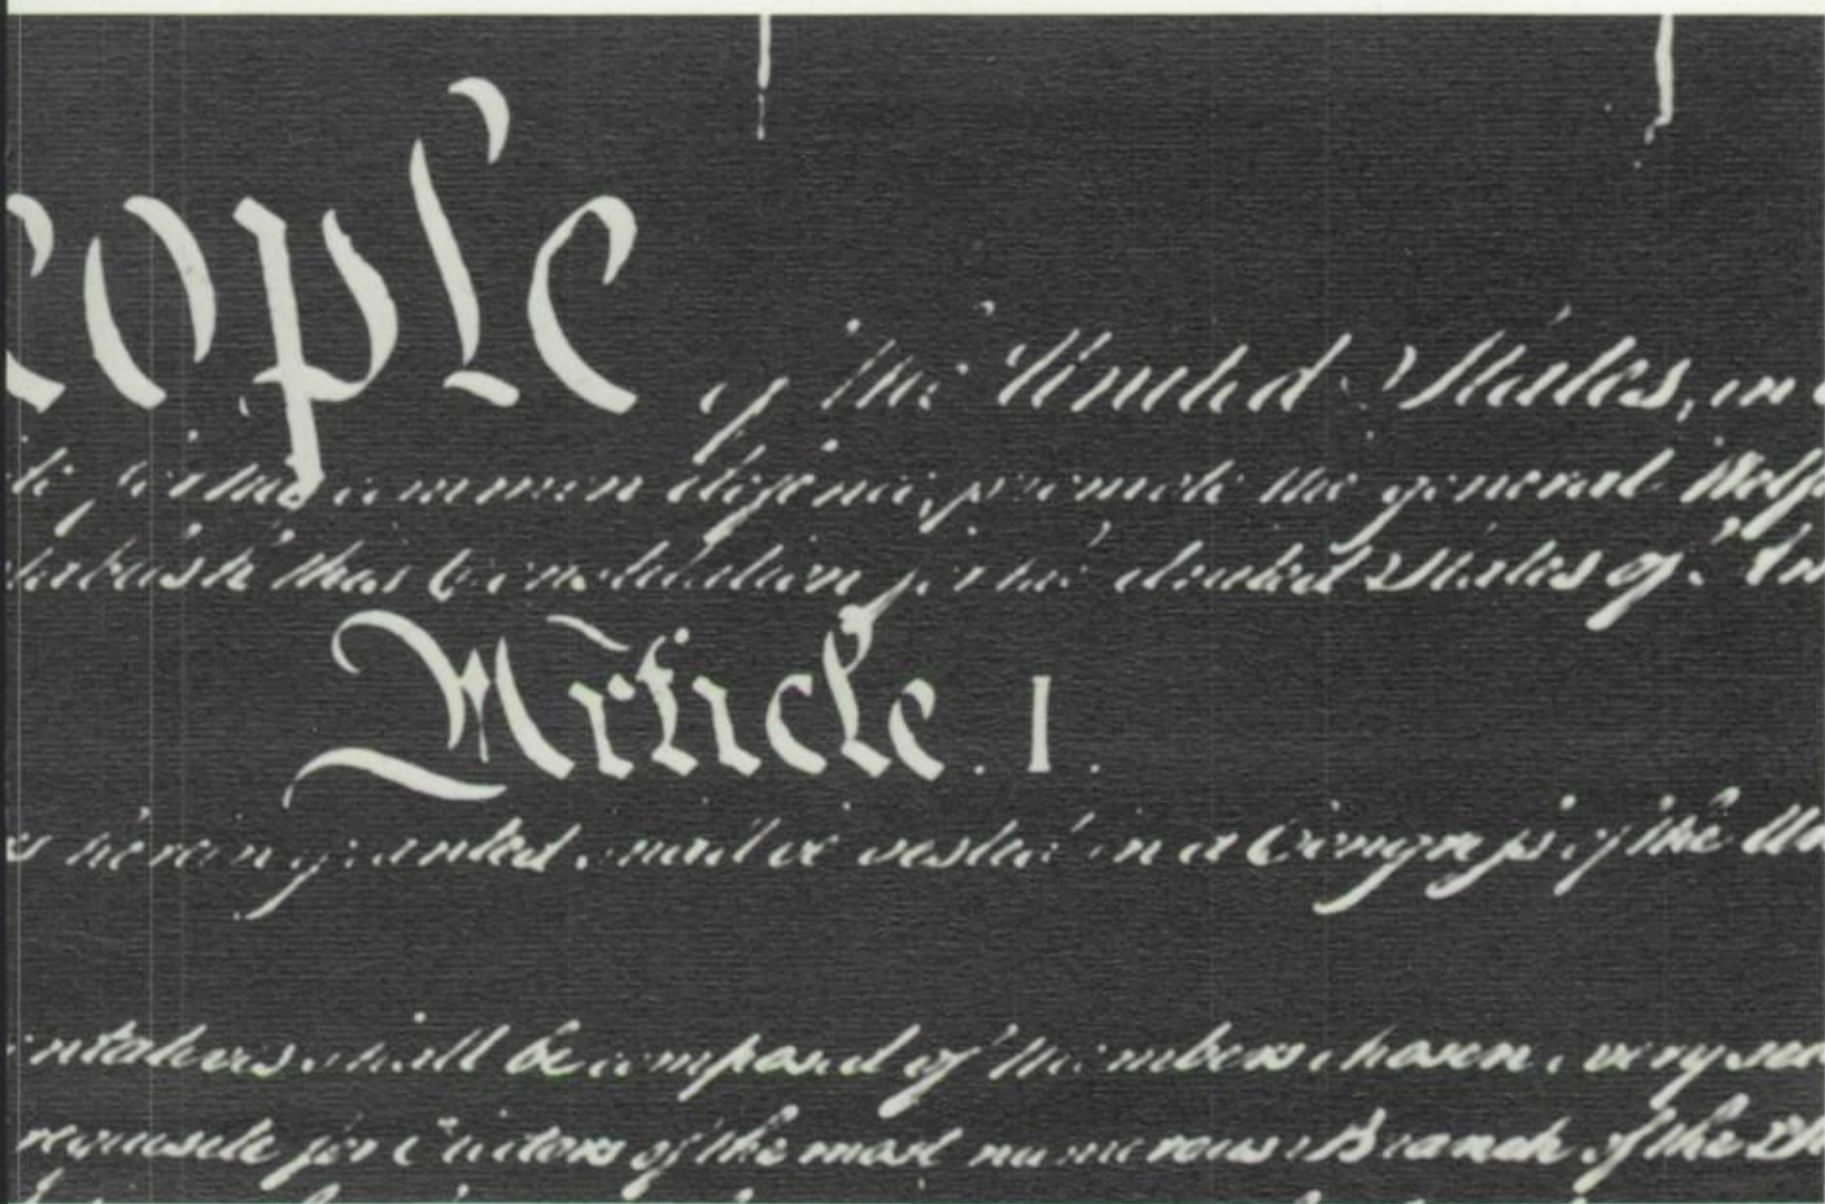 eople of the United States, in
for the common defence, promote the general Welf
this Constitution for the United States of Am
Article. I.
s herein granted shall be vested in a Congress of the Un
entatives shall be composed of Members chosen every sec
requisite for Electors of the most numerous Branch of the St